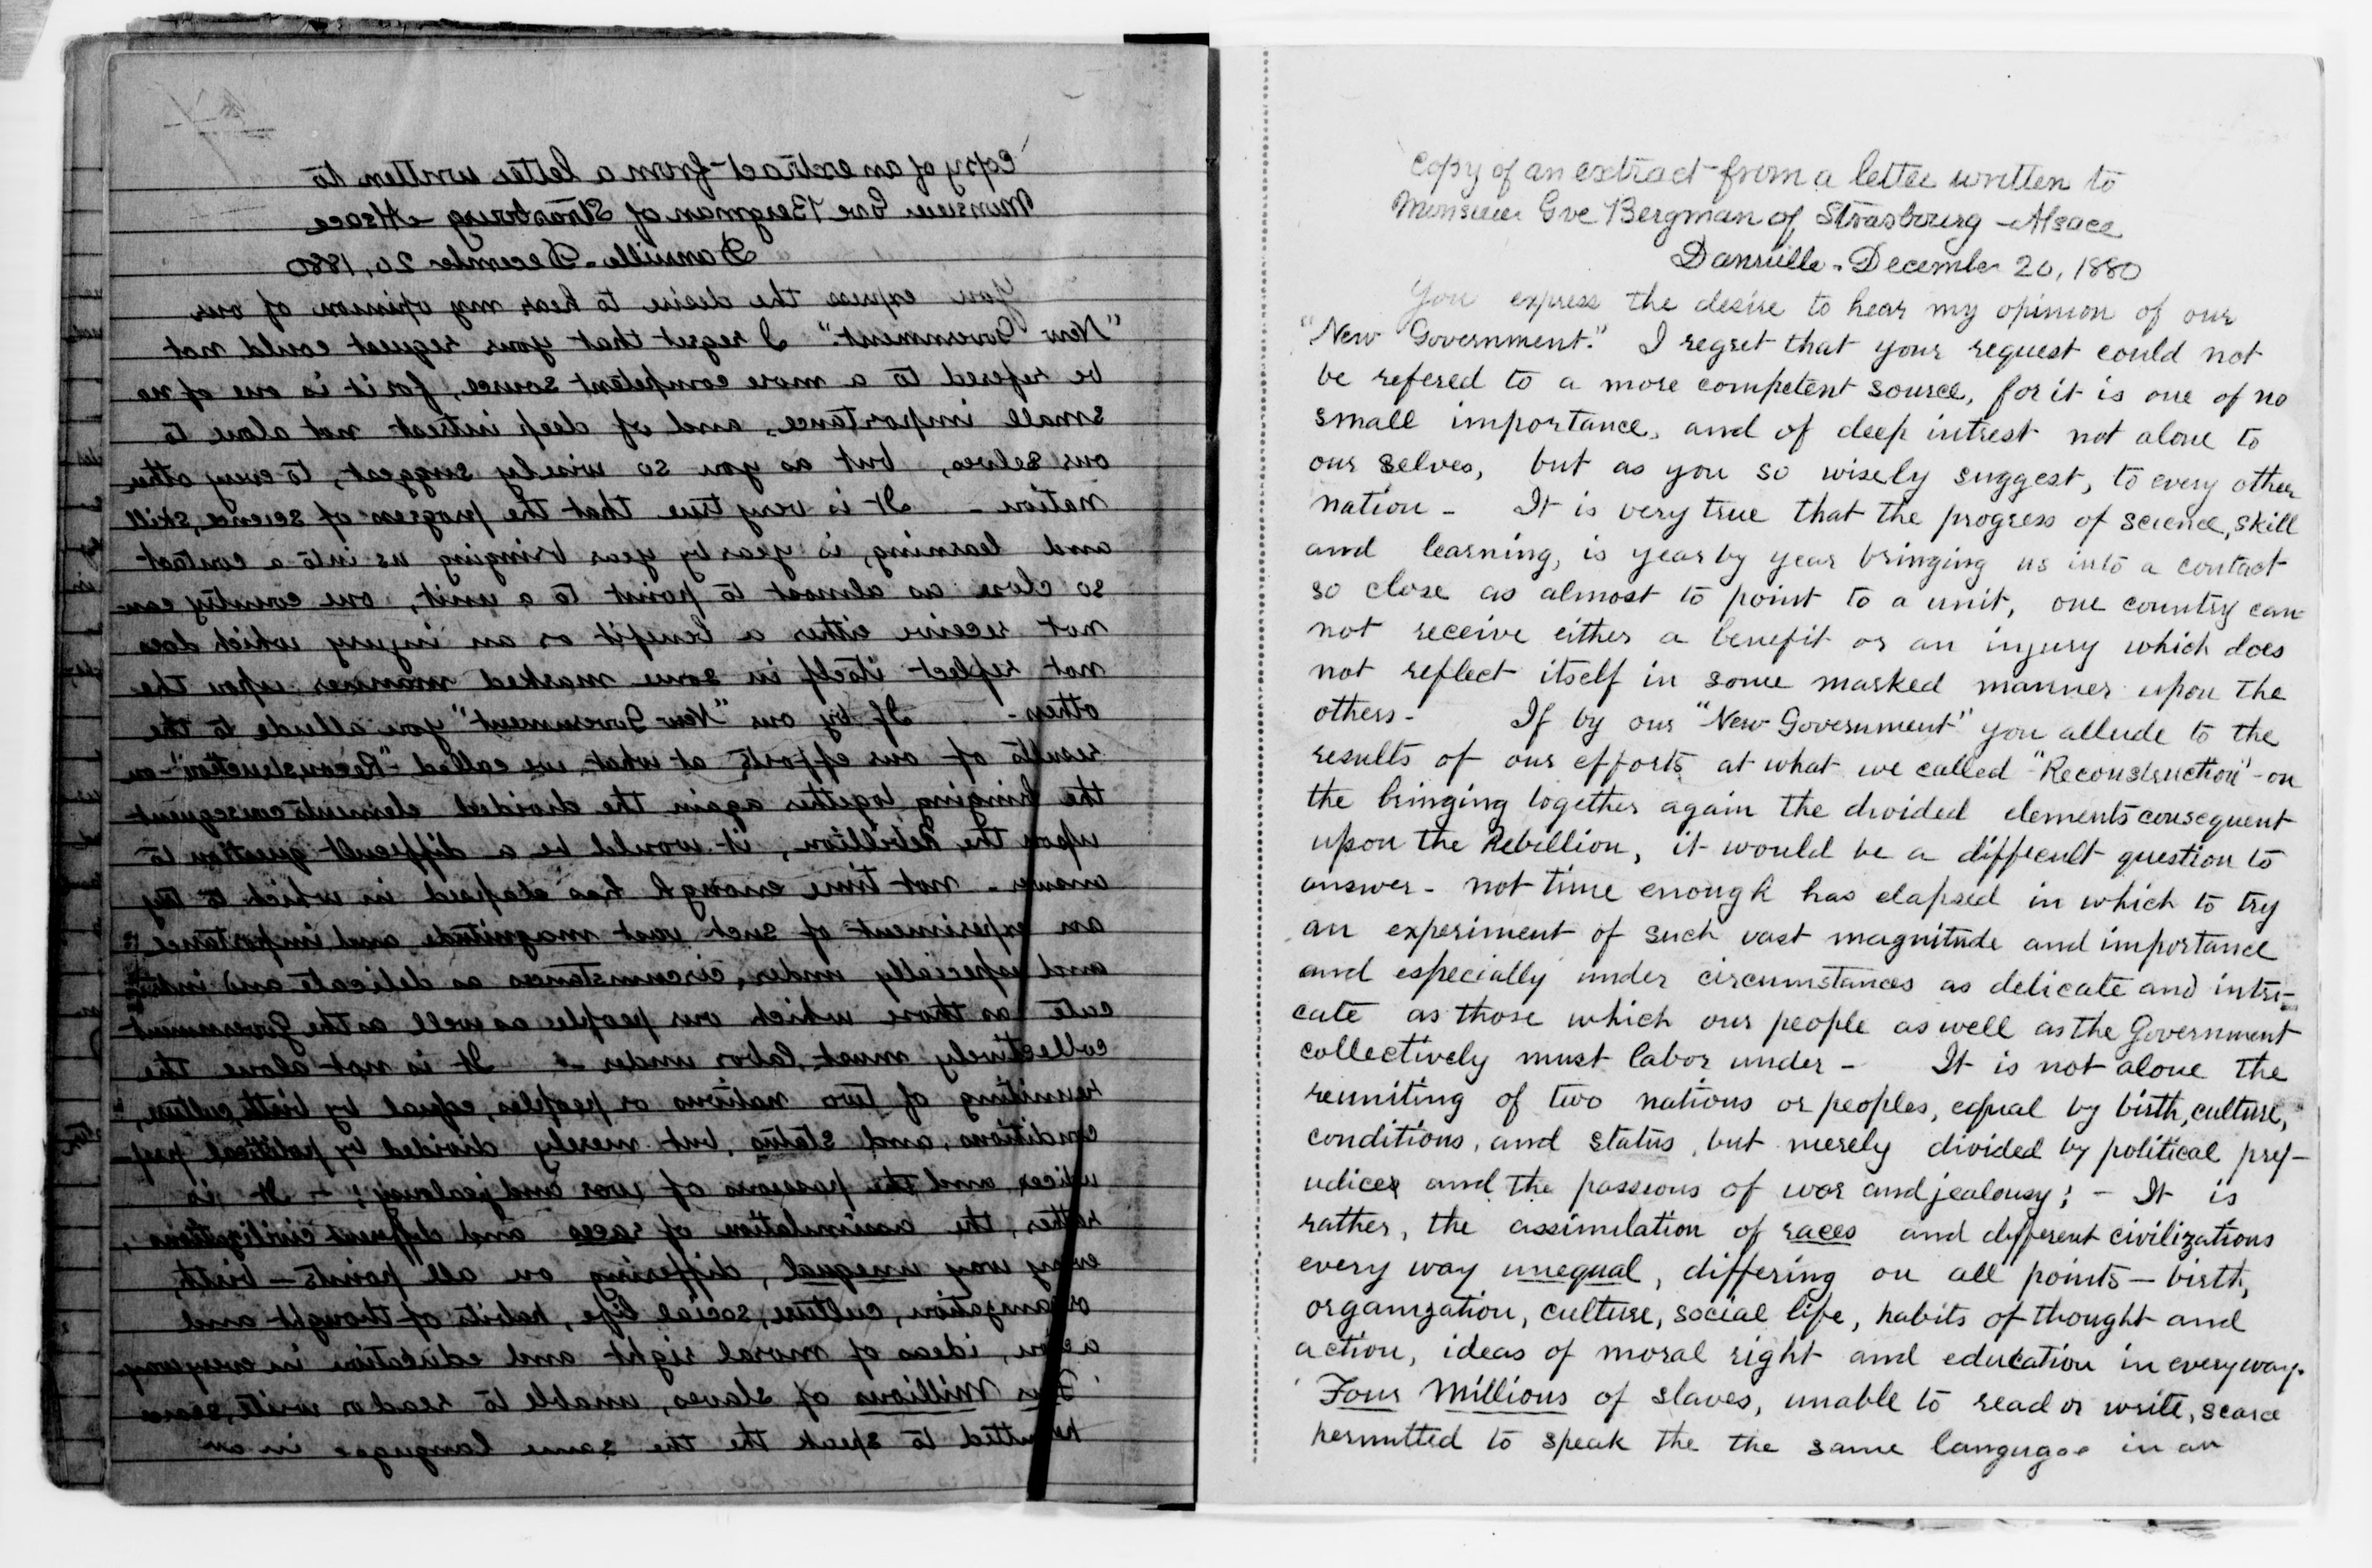 Copy of an extract from a letter written to
Monsieur Gve Bergman of Strasbourg - Alsace
Danville - December 20, 1880
You express the desire to hear my opinion of our
"New Government." I regret that your request could not
be refered to a more competent source, for it is one of no
small importance, and of deep intrest not alone to
our selves, but as you so wisely suggest, to every other
nation - It is very true that the progress of science, skill
and learning, is year by year bringing us into a contact
so close as almost to point to a unit, one country can
not receive either a benefit or an injury which does
not reflect itself in some marked manner upon the
others - If by our "New Government" you allude to the
results of our efforts at what we called "Reconstruction" - or
the bringing together again the divided elements consequent
upon the Rebellion, it would be a difficult question to
answer - not time enough has elapsed in which to try
an experiment of such vast magnitude and importance
and especially under circumstances as delicate and intri-
cate as those which our people as well as the Government
collectively must labor under - It is not alone the
reuniting of two nations or peoples, equal by birth, culture,
conditions, and status, but merely divided by political prej-
udices and the passions of war and jealousy; - It is
rather, the assimilation of races and different civilizations
every way unequal, differing on all points - birth,
organization, culture, social life, habits of thought and
action, ideas of moral right and education in every way.
Four Millions of slaves, unable to read or write, scarce
permitted to speak the the same language in an